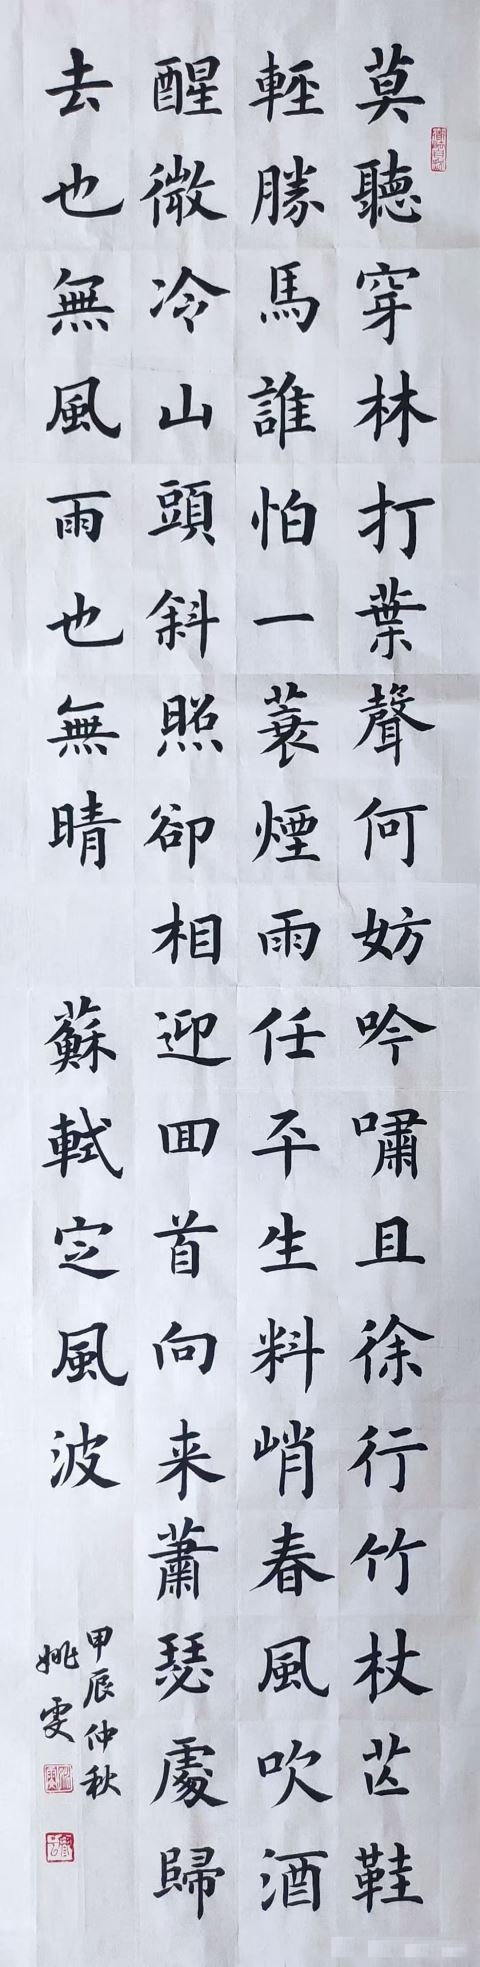 莫聽穿林打葉聲何妨吟嘯且徐行竹杖芒鞋
輕勝馬誰怕一蓑煙雨任平生料峭春風吹酒
醒微冷山頭斜照卻相迎囬首向来蕭瑟處歸
去也無風雨也無晴 蘇軾定風波
甲辰仲秋
姚雯